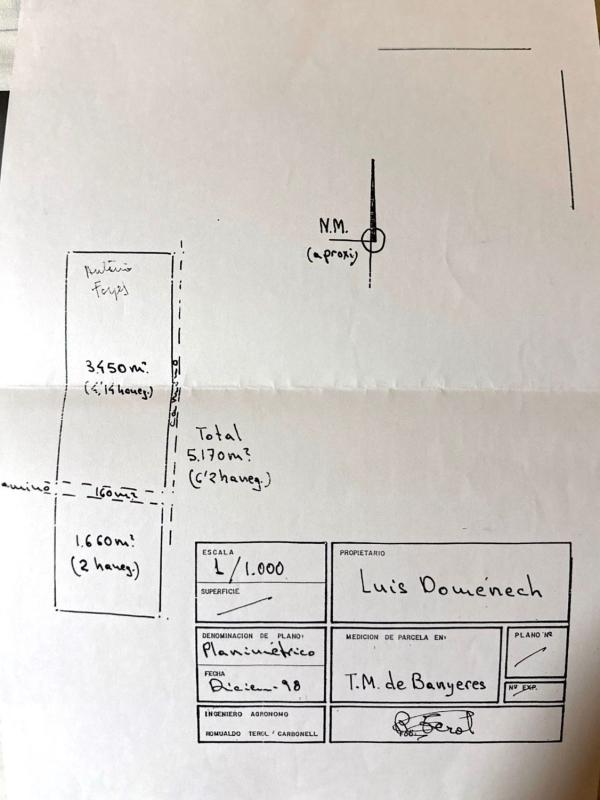 N.M.
(aproxi)
Antonio
3.450 m².
(4,14 haneg.)
CAMINO
Total
5.170 m²
(6'2 haneg.)
amino
160 m²
1.660 m²
(2 haneg.)
ESCALA
1/1.000
SUPERFICIE
PROPIETARIO
Luis Doménech
DENOMINACION DE PLANO:
Planimétrico
FECHA
Diciem-98
MEDICION DE PARCELA EN:
T.M. de Banyeres
PLANO Nº
Nº EXP.
INGENIERO AGRONOMO
ROMUALDO TEROL CARBONELL
R. Terol